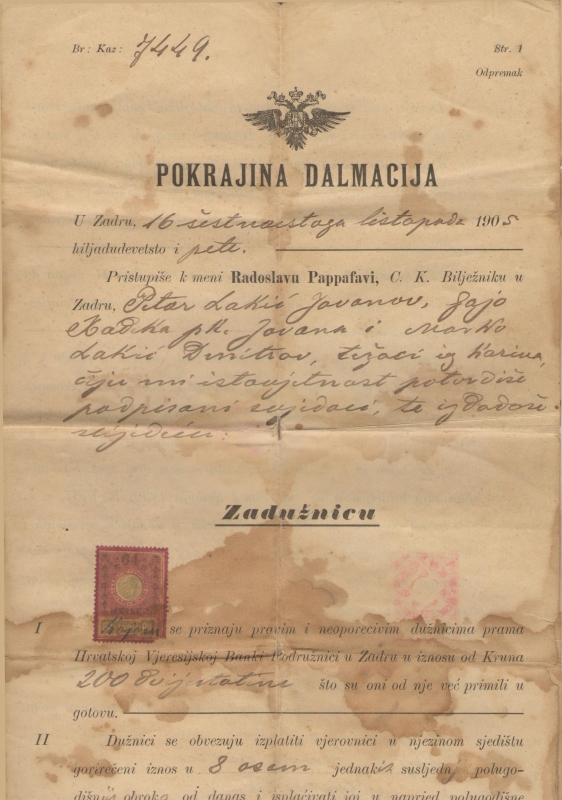 Br: Kaz: 7449.
Str. 1
Odpremak
POKRAJINA DALMACIJA
U Zadru, 16 šestnaestoga listopada 1905
hiljadudevetsto i pete.
Pristupiše k meni Radoslavu Pappafavi, C. K. Bilježniku u
Zadru, Petar Lakić Jovanov, Gajo
Kadka pk. Jovana i Marko
Lakić Dmitrov, težaci iz Karina,
čiju mi istovjetnost potvrdiše
podpisani svjedoci, te izdadoše
slijedeću:
Zadužnicu
I
se priznaju pravim i neoporecivim dužnicima prama
Hrvatskoj Vjeresijskoj Banki Podružnici u Zadru u iznosu od Kruna
200 dvjestotine što su oni od nje već primili u
gotovu.
II Dužnici se obvezuju izplatiti vjerovnici u njezinom sjedištu
gorirečeni iznos u 8 osam jednakih susljedn polugo-
dišnjih obroka od danas i isplaćivati joj u napried polugodišnje